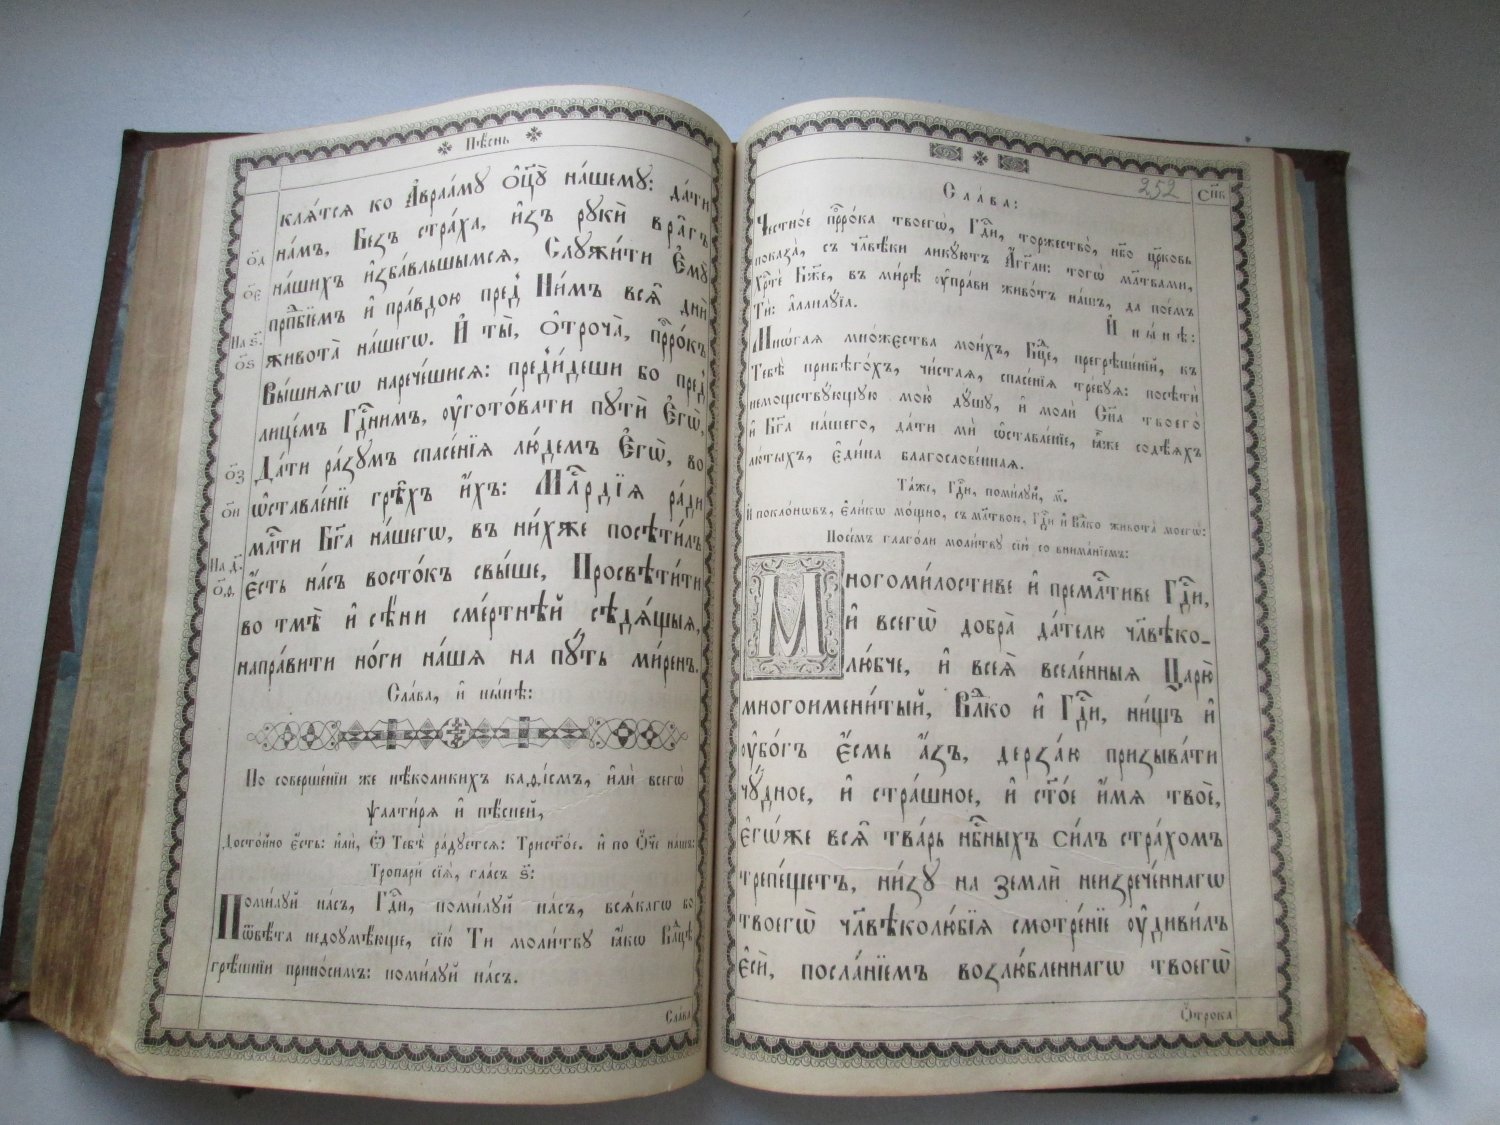 Пѣ́снь
клѧ́тсѧ ко А҆враа́мꙋ ѻ҆ц҃ꙋ̀ на́шемꙋ: да́ти
на́мъ, Без̾ стра́ха, и҆з̾ рꙋкѝ вра̑гъ
о҃д
на́шихъ и҆зба́вльшымсѧ, Слꙋжи́ти Є҆мꙋ̀
о҃є
прпⷣбїемъ и҆ пра́вдою пред̾ Ни́мъ всѧ̑ дни̑
На ѕ҃.
о҃ѕ
живота̀ на́шегѡ. И҆ ты̀, ѻ҆троча̀, прⷪ҇ро́къ
Вы́шнѧгѡ нарече́шисѧ: пред̾и́деши бо пред̾
лице́мъ Гдⷭ҇нимъ, ᲂу҆гото́вати пꙋти̑ Є҆гѡ̀,
о҃з
Да́ти ра́зꙋмъ спасе́нїѧ лю́демъ Є҆гѡ̀, во
о҃и
ѡ҆ставле́нїе грѣ̑хъ и҆́хъ: Млⷭ҇рдїѧ ра́ди
мⷭ҇ти Бг҃а на́шегѡ, въ ни́хже посѣти́лъ
На д҃.
о҃ѳ
є҆́сть на́съ восто́къ свы́ше, Просвѣти́ти
во тмѣ̀ и҆ сѣ́ни сме́ртнѣй сѣдѧ́щыѧ,
напра́вити но́ги на́шѧ на пꙋ́ть ми́ренъ.
Сла́ва, и҆ ны́нѣ:
По соверше́нїи же нѣ́коликихъ каѳі́смъ, и҆лѝ всегѡ̀
ѱалти́рѧ и҆ пѣ́сней,
Досто́йно є҆́сть: и҆лѝ, Ѡ҆ Тебѣ̀ ра́дꙋетсѧ: Трист҃о́е. и҆ по Ѻ҆́ч҃е на́шъ:
Тропари̑ сїѧ̑, гла́съ ѕ҃:
Поми́лꙋй на́съ, Гдⷭ҇и, поми́лꙋй на́съ, всѧ́кагѡ бо
ѿвѣ́та недоꙋмѣ́юще, сїю̀ Тѝ моли́твꙋ ꙗ҆́кѡ Влⷣцѣ
грѣ́шнїи прино́симъ: поми́лꙋй на́съ.
Сла́ва
252
сп҃в
Сла́ва:
Честно́е прⷪ҇ро́ка твоегѡ̀, Гдⷭ҇и, торжество̀, нб҃о цр҃ковь
показа̀, съ человѣ́ки ликꙋ́ютъ А҆́гг҃ли: тогѡ̀ мл҃твами,
Хрⷭ҇тѐ Бж҃е, въ ми́рѣ ᲂу҆пра́ви живо́тъ на́шъ, да пое́мъ
Тѝ: а҆ллилꙋ́їа.
И҆ ны́нѣ:
Мнѡ́гаѧ мно́жєства мои́хъ, Бцⷣе, прегрѣше́нїй, къ
Тебѣ̀ прибѣго́хъ, чи́стаѧ, спасе́нїѧ тре́бꙋѧ: посѣтѝ
немощствꙋ́ющꙋю мою̀ дꙋ́шꙋ, и҆ молѝ Сн҃а твоего̀
и҆ Бг҃а на́шего, да́ти мѝ ѡ҆ставле́нїе, ꙗ҆̀же содѣ́ѧхъ
лю́тыхъ, є҆ди́на благослове́ннаѧ.
Та́же, Гдⷭ҇и, поми́лꙋй, м҃.
И҆ покло́нѡвъ, є҆ли́кѡ мо́щно, съ мл҃твою, Гдⷭ҇и и҆ Влⷣко живота̀ моегѡ̀:
Посе́мъ глаго́ли моли́твꙋ сїю̀ со внима́нїемъ:
Многоми́лостиве и҆ премлⷭ҇тиве Гдⷭ҇и,
и҆ всегѡ̀ добра̀ да́телю чл҃вѣко-
лю́бче, и҆ всеѧ̀ вселе́нныѧ Царю̀
многоимени́тый, Влⷣко и҆ Гдⷭ҇и, ни́щъ и҆
ᲂу҆бо́гъ є҆́смь а҆́зъ, дерза́ю призыва́ти
чꙋ́дное, и҆ стра́шное, и҆ ст҃о́е и҆́мѧ твоѐ,
є҆гѡ́же всѧ̀ тва́рь нбⷭ҇ныхъ си́лъ стра́хомъ
трепе́щетъ, ни́зꙋ на землѝ неизрече́ннагѡ
твоегѡ̀ чл҃вѣколю́бїѧ смотре́нїе ᲂу҆диви́лъ
є҆сѝ, посла́нїемъ возлю́бленнагѡ твоегѡ̀
Ѻ҆́трока